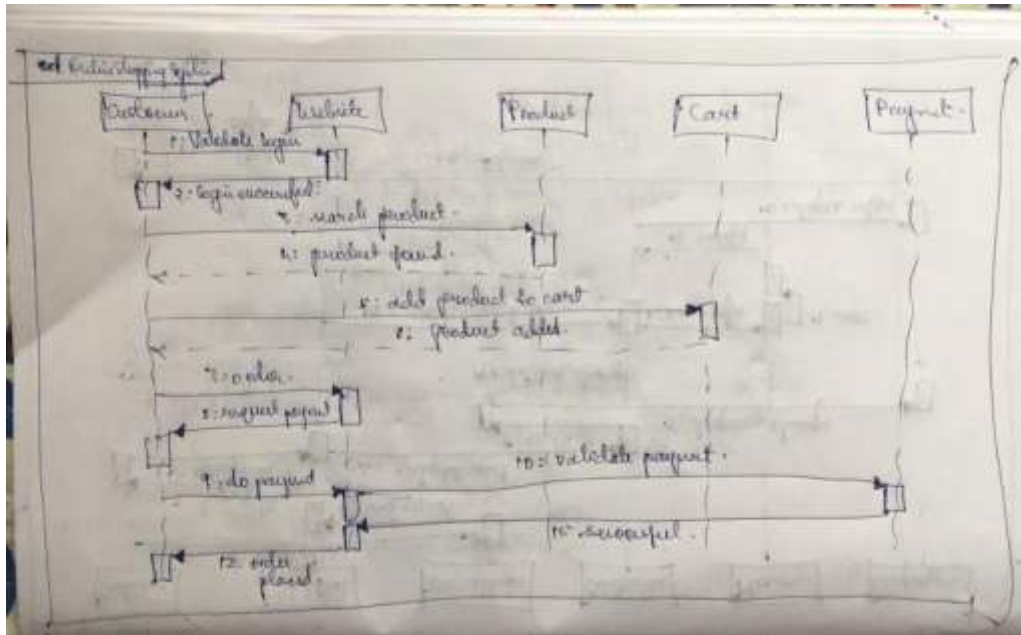 sd Online shopping System
Customer
Website
Product
Cart
Payment
1: Validate login
2: login successful
3: search product
4: product found
5: add product to cart
6: product added
7: order
8: request payment
9: do payment
10: validate payment
successful
12: order
placed